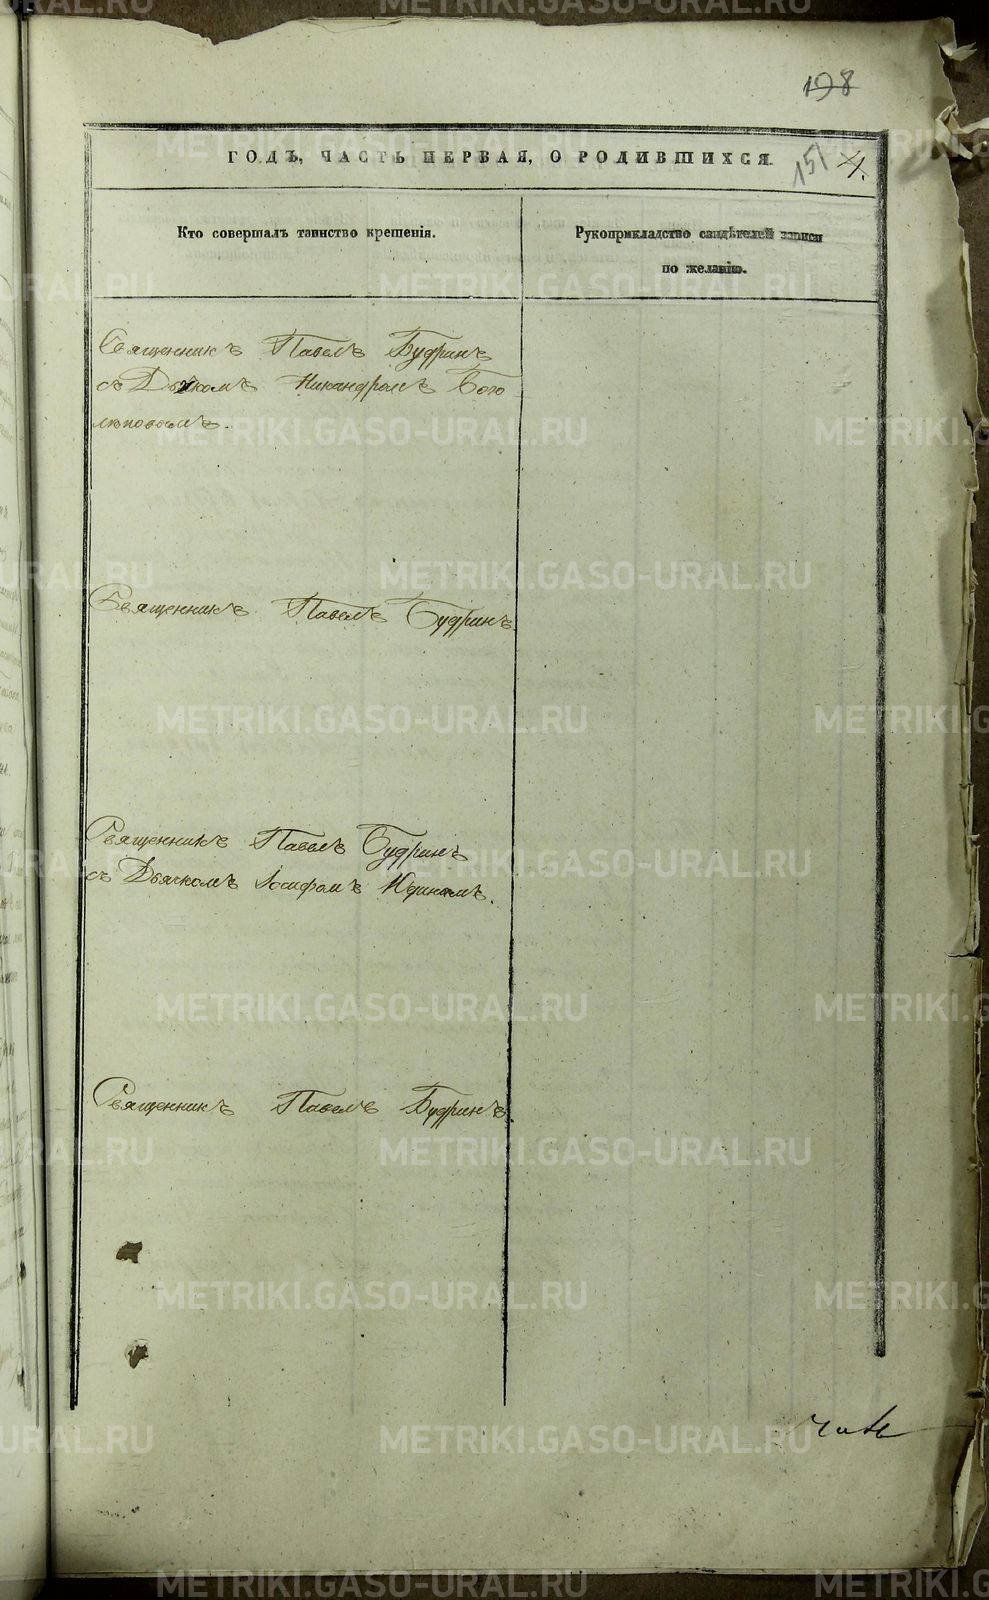 198
ГОДЪ, ЧАСТЬ ПЕРВАЯ, О РОДИВШИХСЯ.
151 4.
Кто совершалъ таинство крещенія.
Рукоприкладство свидѣтелей записи
по желанію.
Священникъ Павелъ Будринъ
съ Дьячкомъ Никандромъ Бого
лѣповымъ.
Священникъ Павелъ Будринъ.
Священникъ Павелъ Будринъ
съ Дьячкомъ Іосифомъ Юдинымъ.
Священникъ Павелъ Будринъ.
METRIKI.GASO-URAL.RU